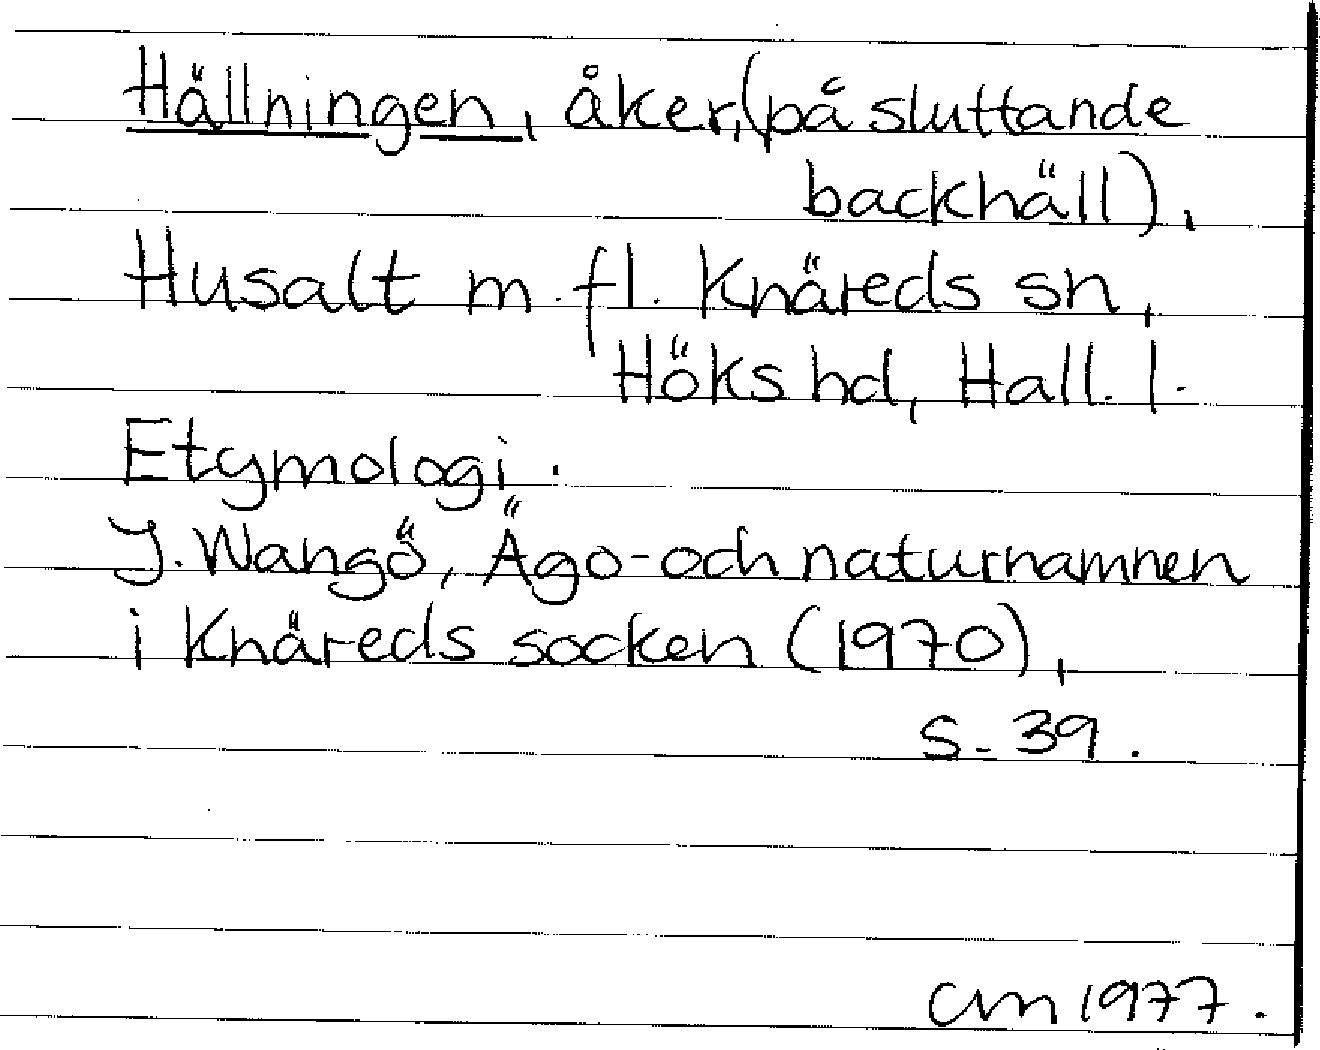 Hällningen, åker, (på sluttande
backhäll),
Husalt m. fl. Knäreds sn,
Höks hd, Hall. l.
Etymologi.
J. Wangö, Ägo- och naturnamnen
i Knäreds socken (1970),
s. 39.
cm 1977.